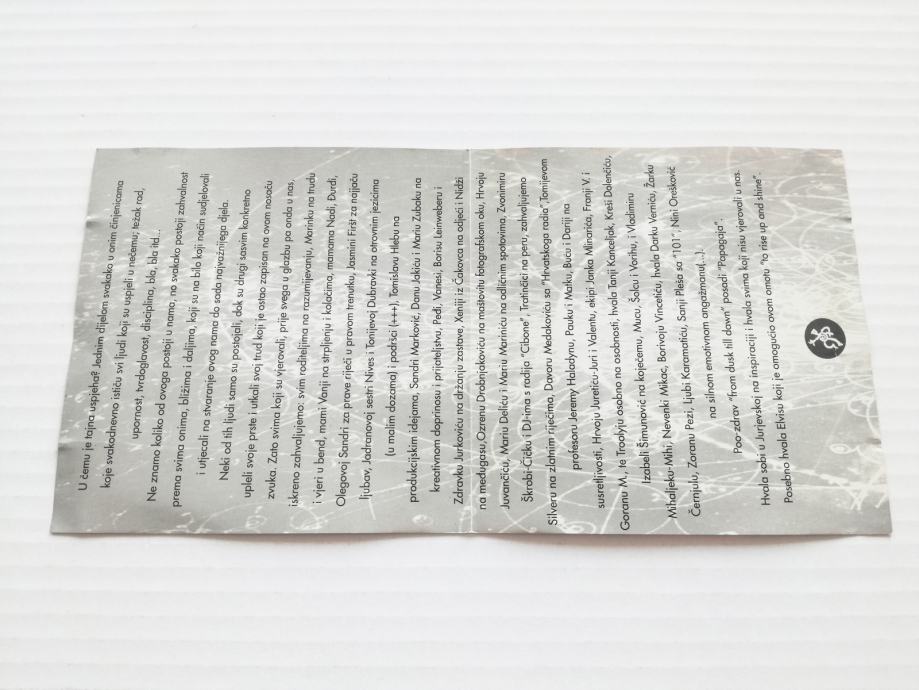 U čemu je tajna uspjeha? Jednim dijelom svakako u onim činjenicama
koje svakodnevno ističu svi ljudi koji su uspjeli u nečemu; težak rad,
upornost, tvrdoglavost, disciplina, bla, bla itd...
Ne znamo koliko od ovoga postoji u nama, no svakako postoji zahvalnost
prema svima onima, bližima i daljima, koji su na bilo koji način sudjelovali
i utjecali na stvaranje ovog nama do sada najvažnijega djela.
Neki od tih ljudi samo su postojali, dok su drugi sasvim konkretno
upleli svoje prste i utkali svoj trud koji je ostao zapisan na ovom nosaču
zvuka. Zato svima koji su vjerovali, prije svega u glazbu pa onda u nas,
iskreno zahvaljujemo; svim roditeljima na razumijevanju, Marinku na trudu
i vjeri u bend, mami Vanji na strpljenju i kolačima, mamama Nadi, Đurđi,
Olegovoj Sandri za prave riječi u pravom trenutku, Jasmini Firšt za najjaču
ljubav, Jadranovoj sestri Nives i Tonijevoj Dubravki na otrovnim jezičima
(u malim dozama) i podršci (+++), Tomislavu Hlebu na
produkcijskim idejama, Sandri Marković, Danu Jakiću i Mariu Zubaku na
kreativnom doprinosu i prijateljstvu, Peđi, Vanesi, Borisu Leinweberu i
Zdravku Jurkoviću na držanju zastave, Xeniji iz Čakovca na odjeći i Nidži
na međugasu, Ozrenu Drobnjakoviću na maslovitu fotografskom oku, Hrvoju
Juvančiću, Mariu Deliću i Mariu Mariniću na odličnim spotovima, Zvonimiru
Škrobi-Čičku i DJ-ima s radija "Cibone", Tratinčici na peru, zahvaljujemo
Silveru na zlatnim riječima, Davoru Medakoviću sa "Hrvatskoga radio", Tomijevom
profesoru Jeremy Haladynu, Pauku i Matku, Bucu i Dariji na
susretljivosti, Hrvoju Juretiću-Juri i Valentu, ekipi Janka Mlinarića, Franji V. i
Goranu M., te Trooly/u osobno na osobnosti, hvala Tanji Kanceljak, Kreši Dolenčiću,
Izabeli Šimunović na koječemu, Mucu, Šolcu i Varihu, i Vladimiru
Mihaljeku-Mihi, Nevenki Mikac, Borivoju Vincetiću, hvala Darku Verniću, Žarku
Černjulu, Zoranu Pezi, Ljubi Karamatiću, Sanji Pleša sa "101", Nini Orešković
na silnom emotivnom angažmanu(...).
Poo-zdrav "from dusk till dawn" posadi "Papagaja".
Hvala sobi u Jurjevskoj na inspiraciji i hvala svima koji nisu vjerovali u nas.
Posebno hvala Elvisu koji je omogućio ovom omotu "to rise up and shine".